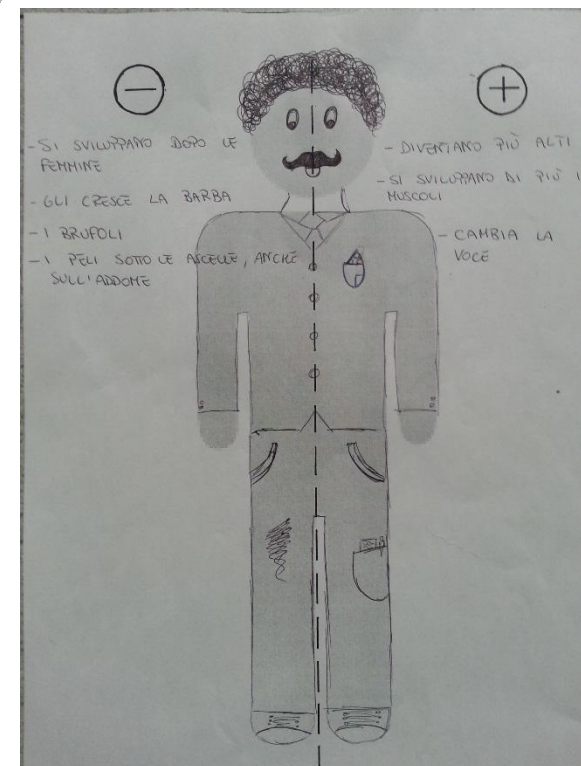 - SI SVILUPPANO DOPO LE
FEMMINE
- GLI CRESCE LA BARBA
- I BRUFOLI
- I PELI SOTTO LE ASCELLE, ANCHE
SULL'ADDOME
- DIVENTANO PIÙ ALTI
- SI SVILUPPANO DI PIÙ I
MUSCOLI
- CAMBIA LA
VOCE